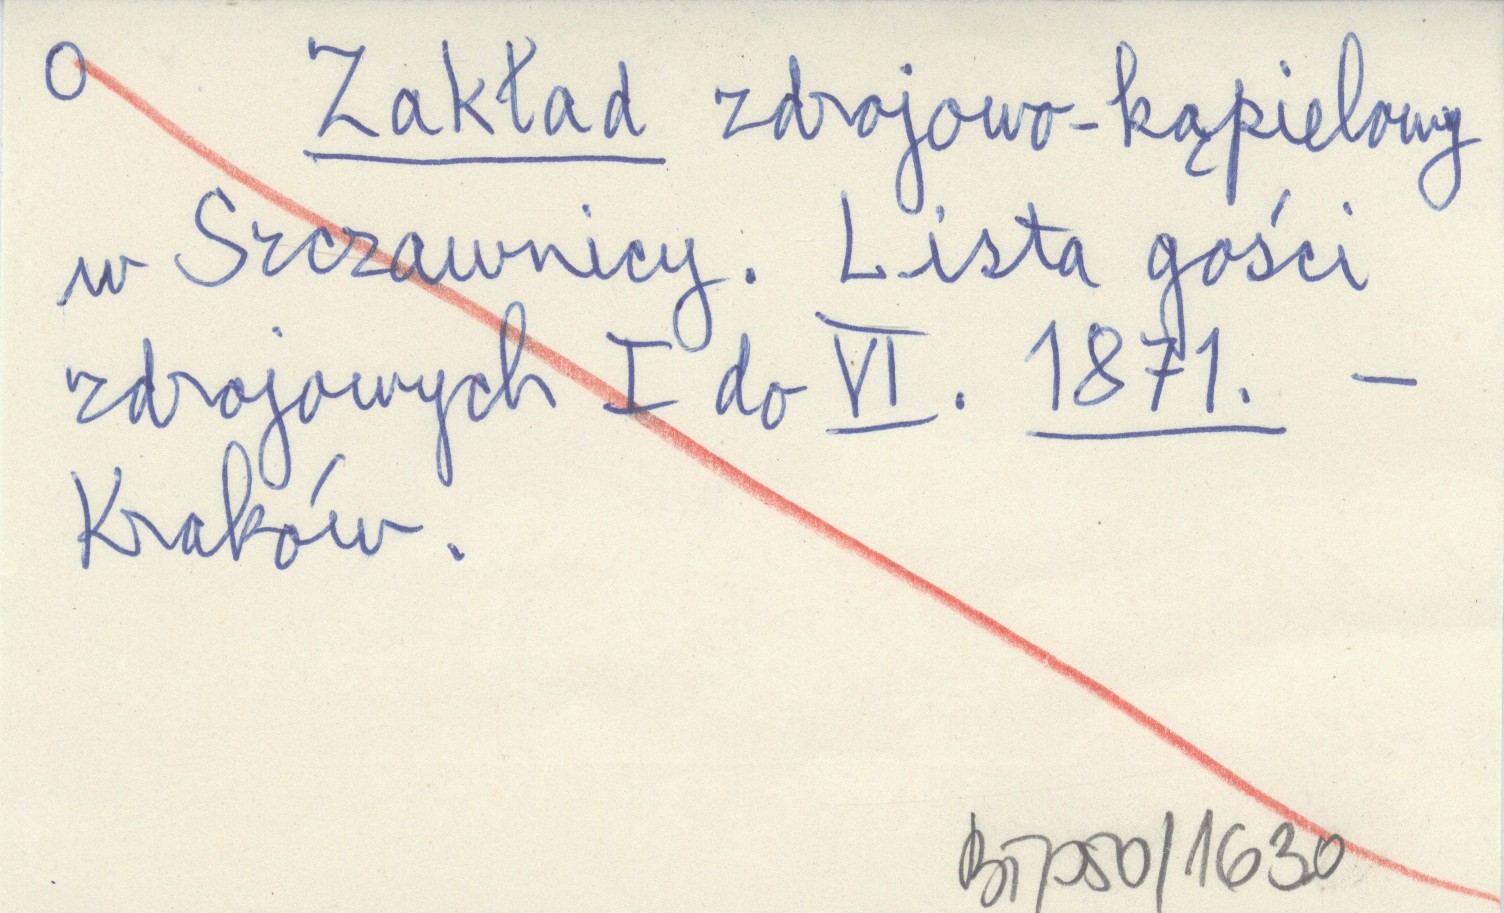 O Zakład zdrojowo-kąpielowy
w Szczawnicy. Lista gości
zdrojowych I do VI. 1871. –
Kraków.
/1630